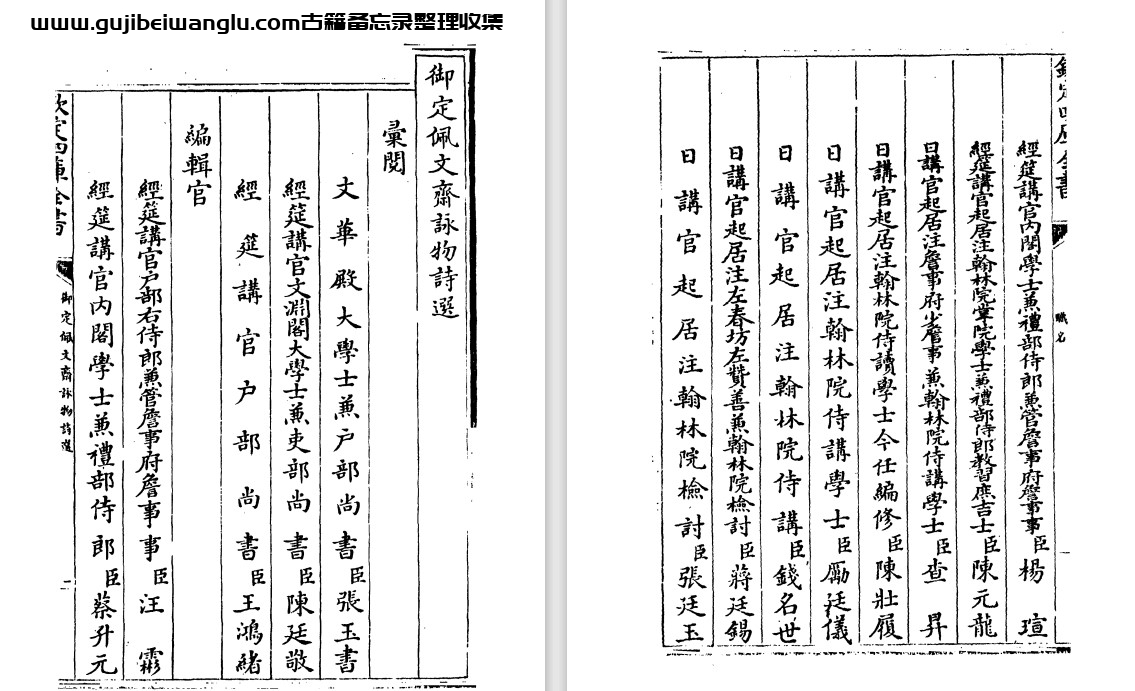 www.gujibeiwanglu.com古籍备忘录整理收集
御定佩文齋詠物詩選
彙閱
文華殿大學士兼户部尚書臣張玉書
經筵講官文淵閣大學士兼吏部尚書臣陳廷敬
經筵講官户部尚書臣王鴻緒
編輯官
經筵講官户部右侍郎兼管詹事府詹事事臣汪霦
經筵講官内閣學士兼禮部侍郎臣蔡升元
欽定四庫全書
御定佩文齋詠物詩選
二
欽定四庫全書
職名
經筵講官内閣學士兼禮部侍郎兼管詹事府詹事事臣楊瑄
經筵講官起居注翰林院掌院學士兼禮部侍郎教習庶吉士臣陳元龍
日講官起居注詹事府少詹事兼翰林院侍講學士臣查昇
日講官起居注翰林院侍讀學士今任編修臣陳壯履
日講官起居注翰林院侍講學士臣勵廷儀
日講官起居注翰林院侍講臣錢名世
日講官起居注左春坊左贊善兼翰林院檢討臣蔣廷錫
日講官起居注翰林院檢討臣張廷玉